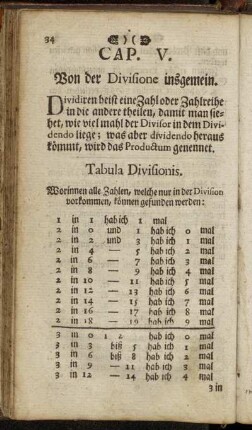 34 ☾)o(☽
CAP. V.
Von der Divisione insgemein.
Dividiren heist eine Zahl oder Zahlreihe
in die andere theilen, damit man sie-
het, wie viel mahl der Divisor in dem Divi-
dendo liege; was aber dividendo heraus
kömmt, wird das Productum genennet.
Tabula Divisionis.
Worinnen alle Zahlen, welche nur in der Division
vorkommen, können gefunden werden:
1 in 1 hab ich 1 mal
2 in 0 und 1 hab ich 0 mal
2 in 2 und 3 hab ich 1 mal
2 in 4 — 5 hab ich 2 mal
2 in 6 — 7 hab ich 3 mal
2 in 8 — 9 hab ich 4 mal
2 in 10 — 11 hab ich 5 mal
2 in 12 — 13 hab ich 6 mal
2 in 14 — 15 hab ich 7 mal
2 in 16 — 17 hab ich 8 mal
2 in 18 — 19 hab ich 9 mal
3 in 0 1 2 hab ich 0 mal
3 in 3 biß 5 hab ich 1 mal
3 in 6 biß 8 hab ich 2 mal
3 in 9 — 11 hab ich 3 mal
3 in 12 — 14 hab ich 4 mal
3 in